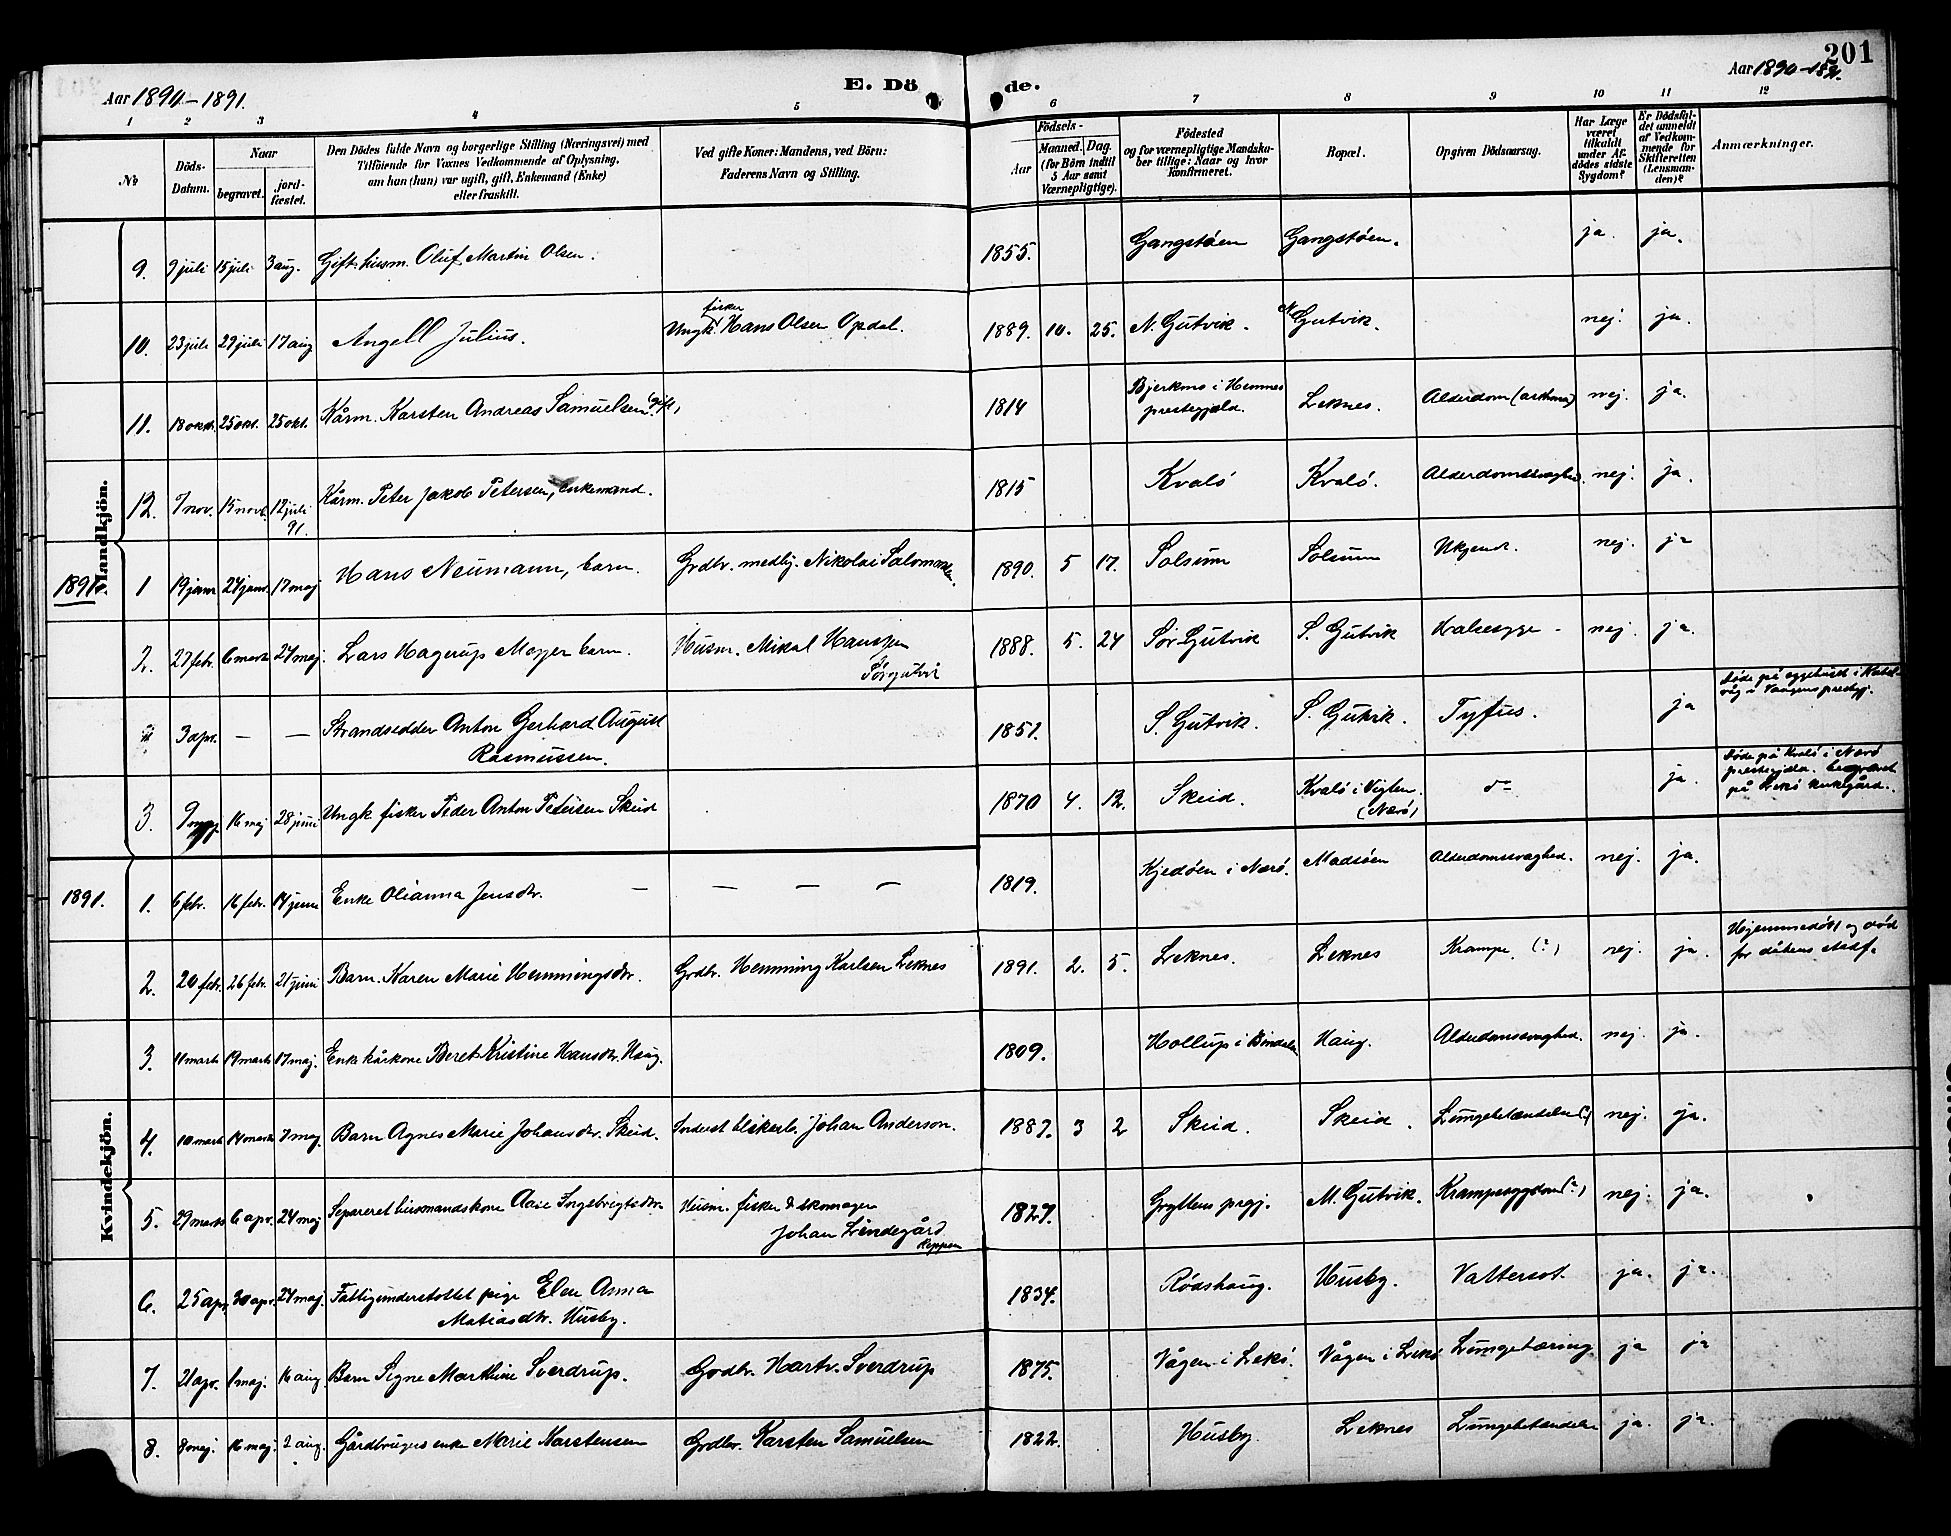 201
Aar 1890-1891.
E. Dö de.
Aar 1890-1891.
1 2 3 4 5 6 7 8 9 10 11 12
№
Döds-Datum.
Naar
begravet.
jord-fæstet.
Den Dödes fulde Navn og borgerlige Stilling (Næringsvei) med
Tilföiende for Voxnes Vedkommende af Oplysning,
om han (hun) var ugift, gift, Enkemand (Enke)
eller fraskilt.
Ved gifte Koner: Mandens, ved Börn:
Faderens Navn og Stilling.
Födsels-
Aar
Maaned. Dag.
(for Börn indtil
5 Aar samt
Værnepligtige).
Födested
og for værnepligtige Mandska-
ber tillige: Naar og hvor
konfirmeret.
Bopæl.
Opgiven Dödsaarsag.
Har Læge
været
tilkaldt
under Af-
dödes sidste
Sygdom?
Er Dödsfal-
det anmeldt
af Vedkom-
mende for
Skifteretten
(Lensman-
den)?
Anmærkninger.
Mandkjön.
9. 9 juli 15 juli 3 aug. Gift husm. Oluf Martin Olsen. 1855. Gangstøen Gangstøen. ja. ja.
10. 23 juli 29 juli 17 aug Angell Julius. Ungk. fisker Hans Olsen Opdal. 1889. 10. 25. N. Gutvik. N Gutvik. nej. ja.
11. 18 okt. 25 okt. 25 okt. Kårm. Karsten Andreas Samuelsen (gift) 1814 i Hemnes
prestegjæld. Leknes. Alderdom (asthma) nej. ja.
12. 7 nov. 15 novb. 12 juli
91. Kårm. Peter Jakob Petersen, enkemand. 1815 Kvalø Kvalø. Alderdomssvaghed. nej. ja.
1891
1 19 janr 27 janr. 17 maj Hans Neumann, barn. Grdbr. medhj. Nikolai Salomonsen. 1890. 5 17. Solsum Solsum Ukjendt. nej. ja
2. 27 febr. 6 marts 24 maj. Lars Hagerup Meyer barn. Husm. Mikal Hanssen
Sørgutvik 1888. 5. 24 Sør Gutvik S. Gutvik Halssyge - nej. ja.
3 apr. — — Strandsidder Anton Gerhard August
Rasmussen. 1851. S. Gutvik. S. Gutvik. Tyfus. ja Døde på sygehuset i Kabel-
våg i Vaagens prestgj.
3. 9 maj 16 maj 28 juni Ungk fisker Peder Anton Petersen Skeid 1870 4. 12. Skeid. Kvalø i Vigten.
(Nærø) do ja. Døde på Kvalø i Nærø
prestegjeld. begravet
på Lekø kirkegård.
Kvindekjön.
1891. 1. 6 febr. 16 febr. 14 juni Enke Olianna Jensdtr. — — — — 1819. Kjedøen i Nærø. Madsøen Alderdomssvaghed. nej. ja.
2. 20 febr. 26 febr. 21 juni Barn. Karen Marie Hemmingsdtr. Grdbr. Hemming Karlsen Leknes 1891. 2. 5. Leknes. Leknes Krampe. (?) nej. ja. Hjemmedøbt og død
for dåbens stadf.
3. 11 marts 19 marts 17 maj. Enke kårkone Beret Kristine Hansdtr. Haug. 1809. Hollup i Bindalen Haug. Alderdomssvaghed. nej. ja.
4. 10 marts 14 marts 7 maj Barn Agnes Marie Johansdtr. Skeid. Inderst Johan Anderson. 1887. 3 2 Skeid. Skeid. Lungebetændelse (?) nej. ja.
5. 29 marts 6 apr. 24 maj Separeret husmandskone Ingebrigtsdtr. Husm. fisker & skomager
Johan Lindegård
1827. Gryttens prgj. M. Gutvik. Krampesygdom (?) nej. ja.
6. 25 apr. 30 apr. 24 maj. Fattigunderstøttet pige Elen Anna
Matiasdtr. Husby. 1834. Rødshaug. Husby. Vattersot. ja. ja.
7. 21 apr. 1 maj. 16 aug. Barn Signe Marthine Sverdrup. Grdbr. Hartv. Sverdrup 1875. Vågen i Lekø. Vågen i Lekø Lungetæring ja ja
8. 8 maj. 16 maj. 2 aug. Gårdbrugers enke Marie Karstensen Grdbr. Karsten Samuelsen 1822. Husby. Leknes Lungebetændelse ja. ja.